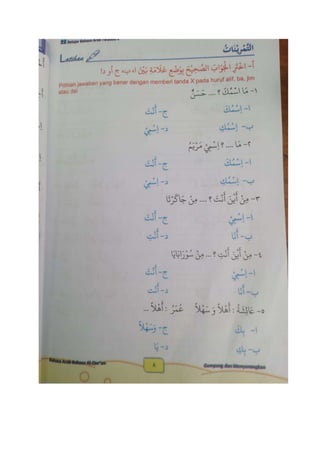 Belajar Bahasa Arab
التَّمْرِيْنَاتُ
Latihan
أ- اِخْتَرِ الْجَوَابَ الصَّحِيْحَ بِوَضْعِ عَلَامَةِ بَيْنَ ا، ب، ج أو د!
Pilihlah jawaban yang benar dengan memberi tanda X pada huruf alif, ba, jim
atau dal
١- مَا اسْمُكَ ؟ .... حَسَنٌ
ا- اِسْمُكَ ج- أَنْتَ
ب- اِسْمُكِ د- اِسْمِيْ
٢- مَا .... ؟ اِسْمِيْ مَرْيَمُ
ا- اِسْمُكَ ج- أَنْتَ
ب- اِسْمُكِ د- اِسْمِيْ
٣- مِنْ أَيْنَ أَنْتَ ؟ .... مِنْ جَاكَرْتَا
ا- اِسْمِيْ ج- أَنْتَ
ب- أَنَا د- أَنْتِ
٤- مِنْ أَيْنَ أَنْتِ ؟ ... مِنْ سُوْرَابَايَا
ا- اِسْمِيْ ج- أَنْتَ
ب- أَنَا د- أَنْتِ
٥- عَائِشَةُ : أَهْلًا وَ سَهْلًا عُمَرُ : أَهْلًا ...
ا- بِكَ ج- وَسَهْلًا
ب- بِكِ د- يَا
Bahasa Arab Bahasa Al-Qur'an
٤
Gampang dan Menyenangkan